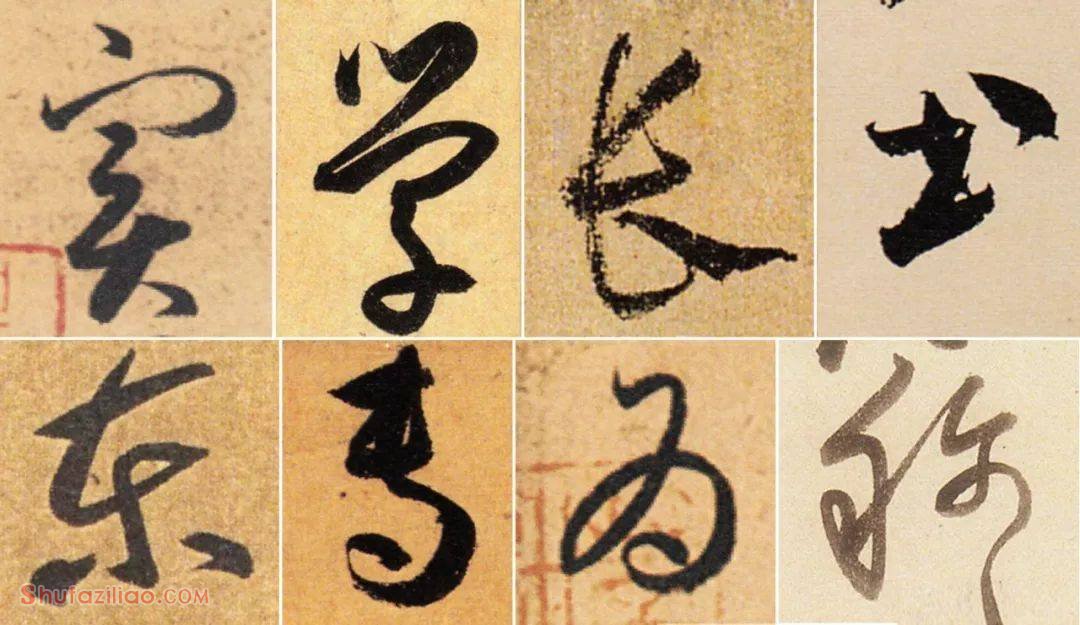 实学长书
东专为
Shufaziliao.COM